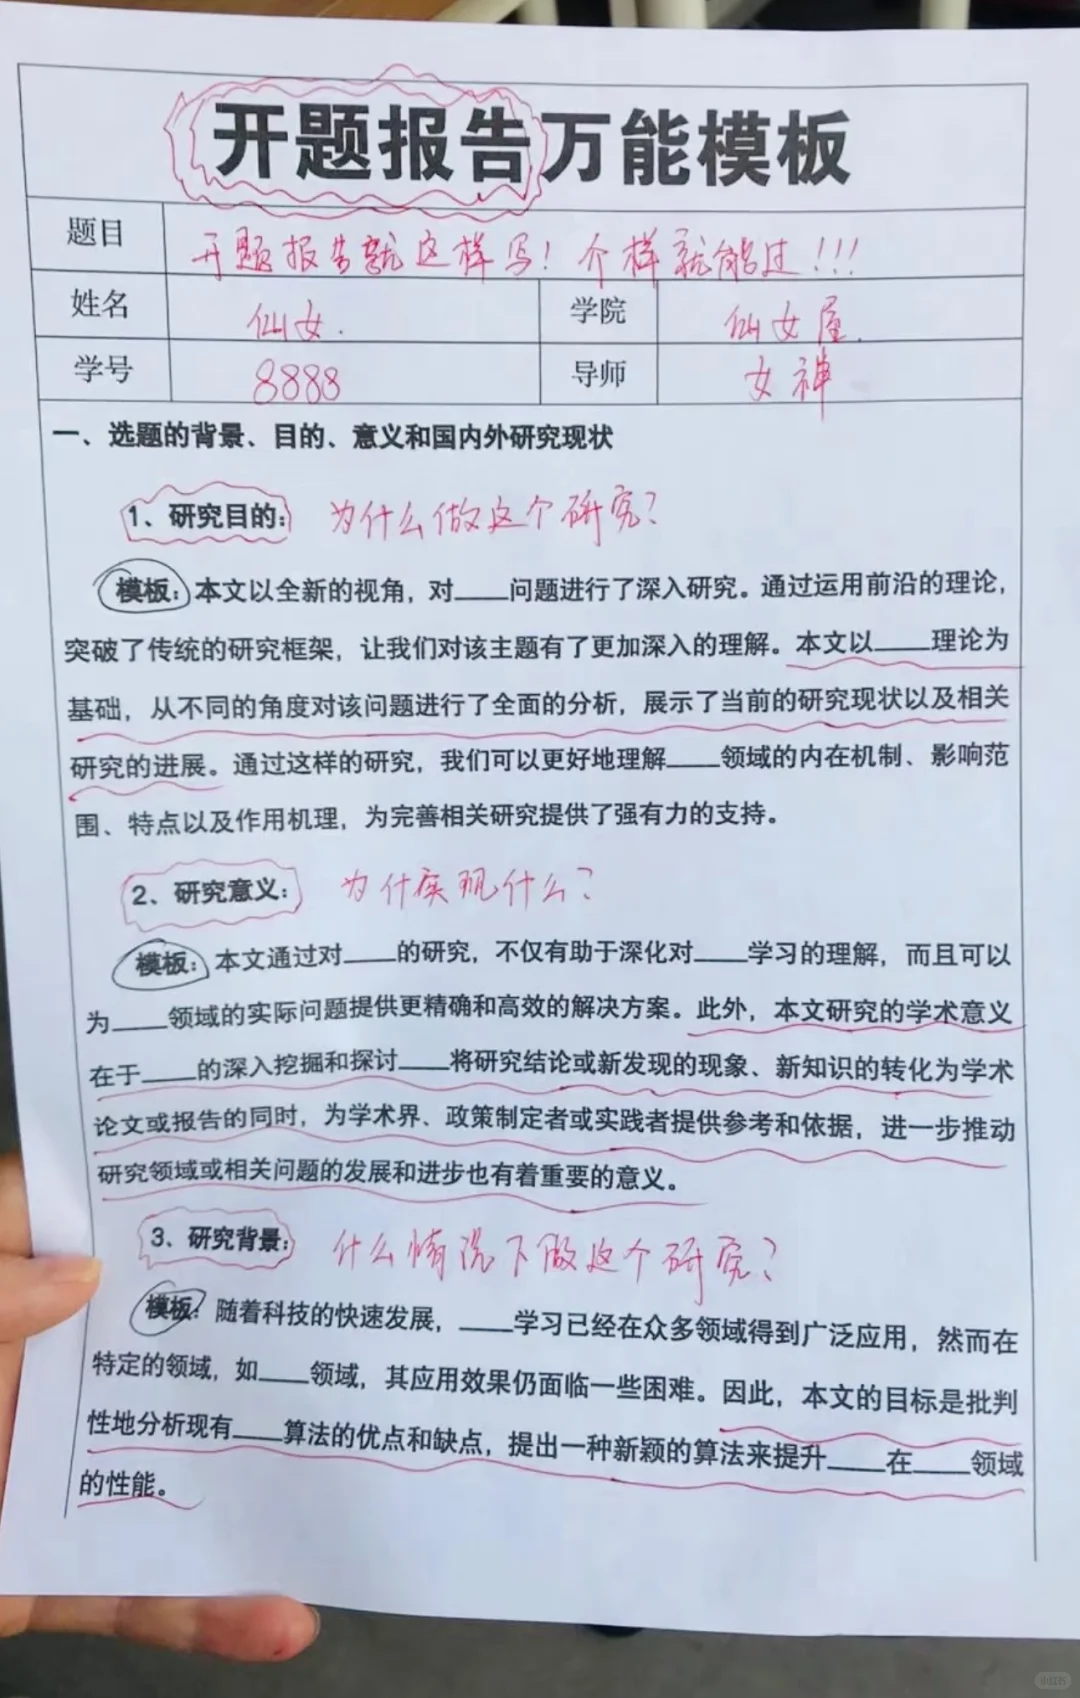 开题报告万能模板
题目 开题报告就这样写！个样就能过！！！
姓名 仙女. 学院 仙女屋.
学号 8888 导师 女神
一、选题的背景、目的、意义和国内外研究现状
1、研究目的： 为什么做这个研究？
模板：本文以全新的视角，对____问题进行了深入研究。通过运用前沿的理论，
突破了传统的研究框架，让我们对该主题有了更加深入的理解。本文以____理论为
基础，从不同的角度对该问题进行了全面的分析，展示了当前的研究现状以及相关
研究的进展。通过这样的研究，我们可以更好地理解____领域的内在机制、影响范
围、特点以及作用机理，为完善相关研究提供了强有力的支持。
2、研究意义： 为什实现什么？
模板：本文通过对____的研究，不仅有助于深化对____学习的理解，而且可以
为____领域的实际问题提供更精确和高效的解决方案。此外，本文研究的学术意义
在于____的深入挖掘和探讨____将研究结论或新发现的现象、新知识的转化为学术
论文或报告的同时，为学术界、政策制定者或实践者提供参考和依据，进一步推动
研究领域或相关问题的发展和进步也有着重要的意义。
3、研究背景： 什么情况下做这个研究？
模板：随着科技的快速发展，____学习已经在众多领域得到广泛应用，然而在
特定的领域，如____领域，其应用效果仍面临一些困难。因此，本文的目标是批判
性地分析现有____算法的优点和缺点，提出一种新颖的算法来提升____在____领域
的性能。
小红书